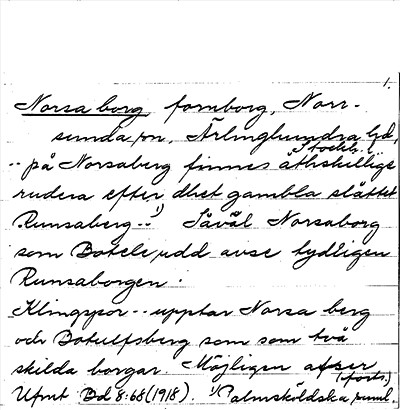 1.
Norsa borg, fornborg, Norr-
sunda sn, Ärlinghundra hd,
Stockh. l.
-- på Norsaberg finnes åthskillige
rudera efter dhet gambla slåttet
Runsaberg --¹) Såväl Norsaborg
som Botele udd avse tydligen
Runsaborgen.
Klingspor -- upptar Norsa berg
och Botulfsberg som som två
skilda borgar. Möjligen afser
(forts.)
Ufmt Bd 8:68 (1918). ¹) Palmsköldska saml.